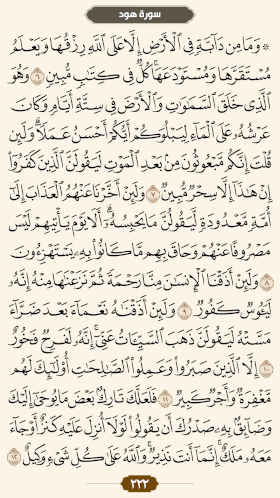 سورة هود
۞ وَمَا مِن دَآبَّةٍ فِي ٱلْأَرْضِ إِلَّا عَلَى ٱللَّهِ رِزْقُهَا وَيَعْلَمُ
مُسْتَقَرَّهَا وَمُسْتَوْدَعَهَا ۚ كُلٌّ فِي كِتَٰبٍ مُّبِينٍ ٦ وَهُوَ
ٱلَّذِي خَلَقَ ٱلسَّمَٰوَٰتِ وَٱلْأَرْضَ فِي سِتَّةِ أَيَّامٍ وَكَانَ
عَرْشُهُۥ عَلَى ٱلْمَآءِ لِيَبْلُوَكُمْ أَيُّكُمْ أَحْسَنُ عَمَلًا ۗ وَلَئِن
قُلْتَ إِنَّكُم مَّبْعُوثُونَ مِنۢ بَعْدِ ٱلْمَوْتِ لَيَقُولَنَّ ٱلَّذِينَ كَفَرُوٓا۟
إِنْ هَٰذَآ إِلَّا سِحْرٌ مُّبِينٌ ٧ وَلَئِنْ أَخَّرْنَا عَنْهُمُ ٱلْعَذَابَ إِلَىٰٓ
أُمَّةٍ مَّعْدُودَةٍ لَّيَقُولُنَّ مَا يَحْبِسُهُۥٓ ۗ أَلَا يَوْمَ يَأْتِيهِمْ لَيْسَ
مَصْرُوفًا عَنْهُمْ وَحَاقَ بِهِم مَّا كَانُوا۟ بِهِۦ يَسْتَهْزِءُونَ
٨ وَلَئِنْ أَذَقْنَا ٱلْإِنسَٰنَ مِنَّا رَحْمَةً ثُمَّ نَزَعْنَٰهَا مِنْهُ إِنَّهُۥ
لَيَـُٔوسٌ كَفُورٌ ٩ وَلَئِنْ أَذَقْنَٰهُ نَعْمَآءَ بَعْدَ ضَرَّآءَ
مَسَّتْهُ لَيَقُولَنَّ ذَهَبَ ٱلسَّيِّـَٔاتُ عَنِّيٓ ۚ إِنَّهُۥ لَفَرِحٌ فَخُورٌ
١٠ إِلَّا ٱلَّذِينَ صَبَرُوا۟ وَعَمِلُوا۟ ٱلصَّٰلِحَٰتِ أُو۟لَٰٓئِكَ لَهُم
مَّغْفِرَةٌ وَأَجْرٌ كَبِيرٌ ١١ فَلَعَلَّكَ تَارِكٌۢ بَعْضَ مَا يُوحَىٰٓ إِلَيْكَ
وَضَآئِقٌۢ بِهِۦ صَدْرُكَ أَن يَقُولُوا۟ لَوْلَآ أُنزِلَ عَلَيْهِ كَنزٌ أَوْ جَآءَ
مَعَهُۥ مَلَكٌ ۚ إِنَّمَآ أَنتَ نَذِيرٌ ۚ وَٱللَّهُ عَلَىٰ كُلِّ شَيْءٍ وَكِيلٌ ١٢
٢٢٢